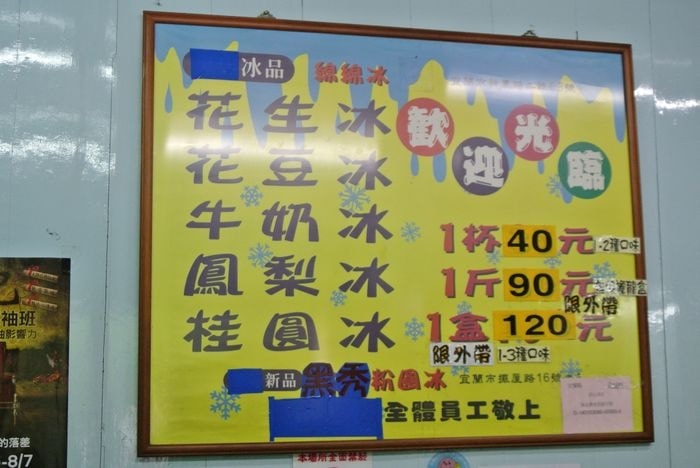 冰品 綿綿冰
花生冰
花豆冰
牛奶冰
鳳梨冰
桂圓冰
歡迎光臨
1杯40元 1-2種口味
1斤90元
限外帶
1盒120元
限外帶 1-3種口味
新品 黑秀粉圓冰 宜蘭市擺厘路16號
全體員工敬上
袖班
影響力
的落差
-8/7
本場所全面禁菸